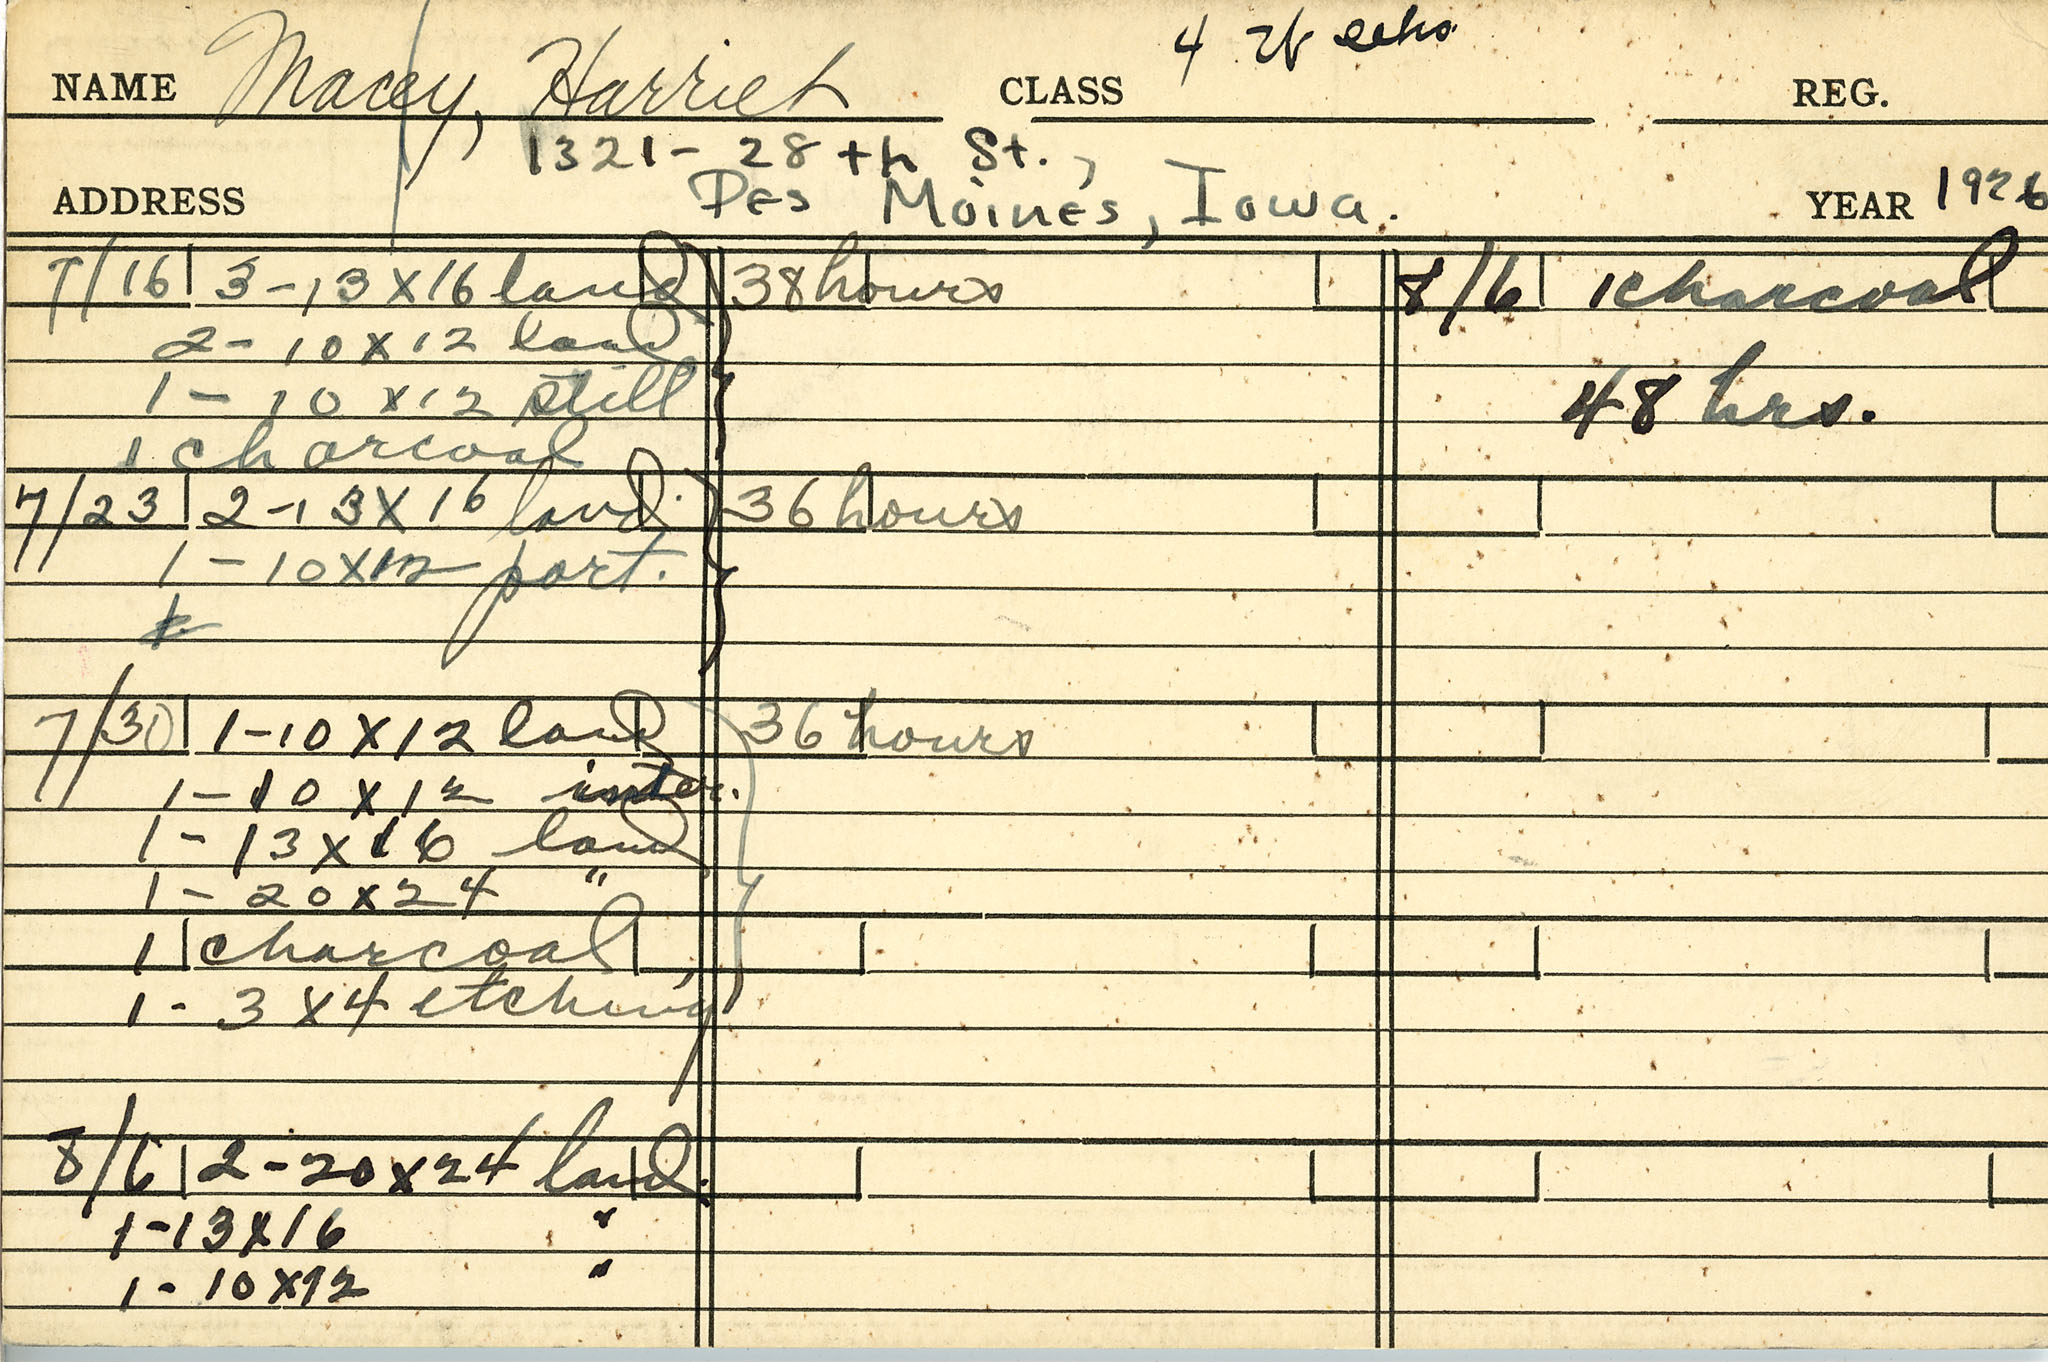 NAME Macey, Harriet CLASS 4 Weeks REG.
1321-28th St.,
ADDRESS Des Moines, Iowa. YEAR 1926
7/16 3-13X16 land 38 hours 8/6 1 charcoal
2-10X12 land
1-10X12 still 48 hrs.
1 charcoal
7/23 2-13X16 land. 36 hours
1-10X12 port.
7/30 1-10X12 land 36 hours
1-10X12 inter.
1-13X16 land
1-20X24 "
1 charcoal
1-3X4 etching
8/6 2-20X24 land.
1-13X16 "
1-10X12 "